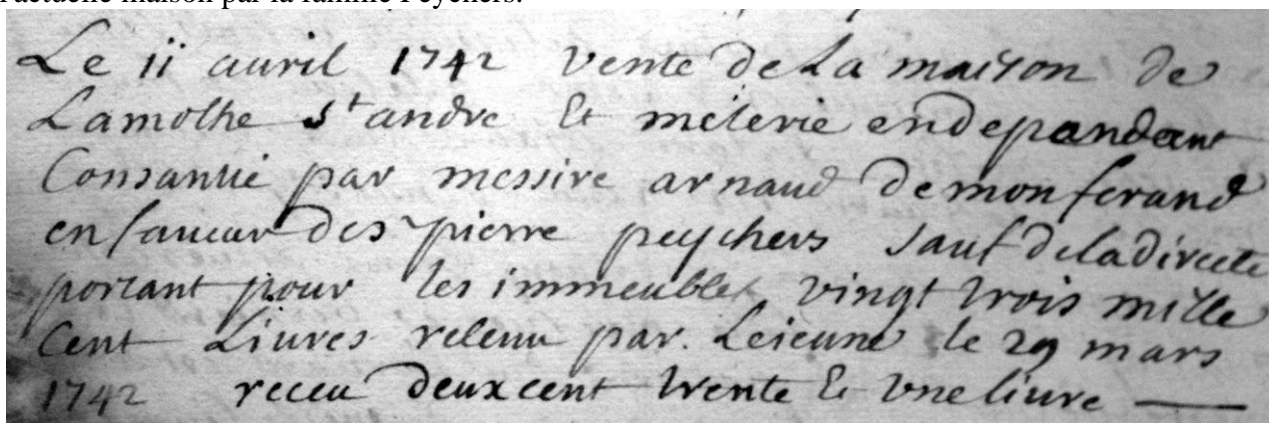 l'actuelle maison par la famille Peychers.
Le ii auril 1742 vente de La maison de
Lamothe St andre Et meterie endepandant
Consantie par messire arnaud demonferand
en faueur des pierre peychers sauf deladirecte
portant pour les immeubles vingt trois mille
Cent Liures retenu par. Leieune le 29 mars
1742 receu deux cent trente Et vne liure —